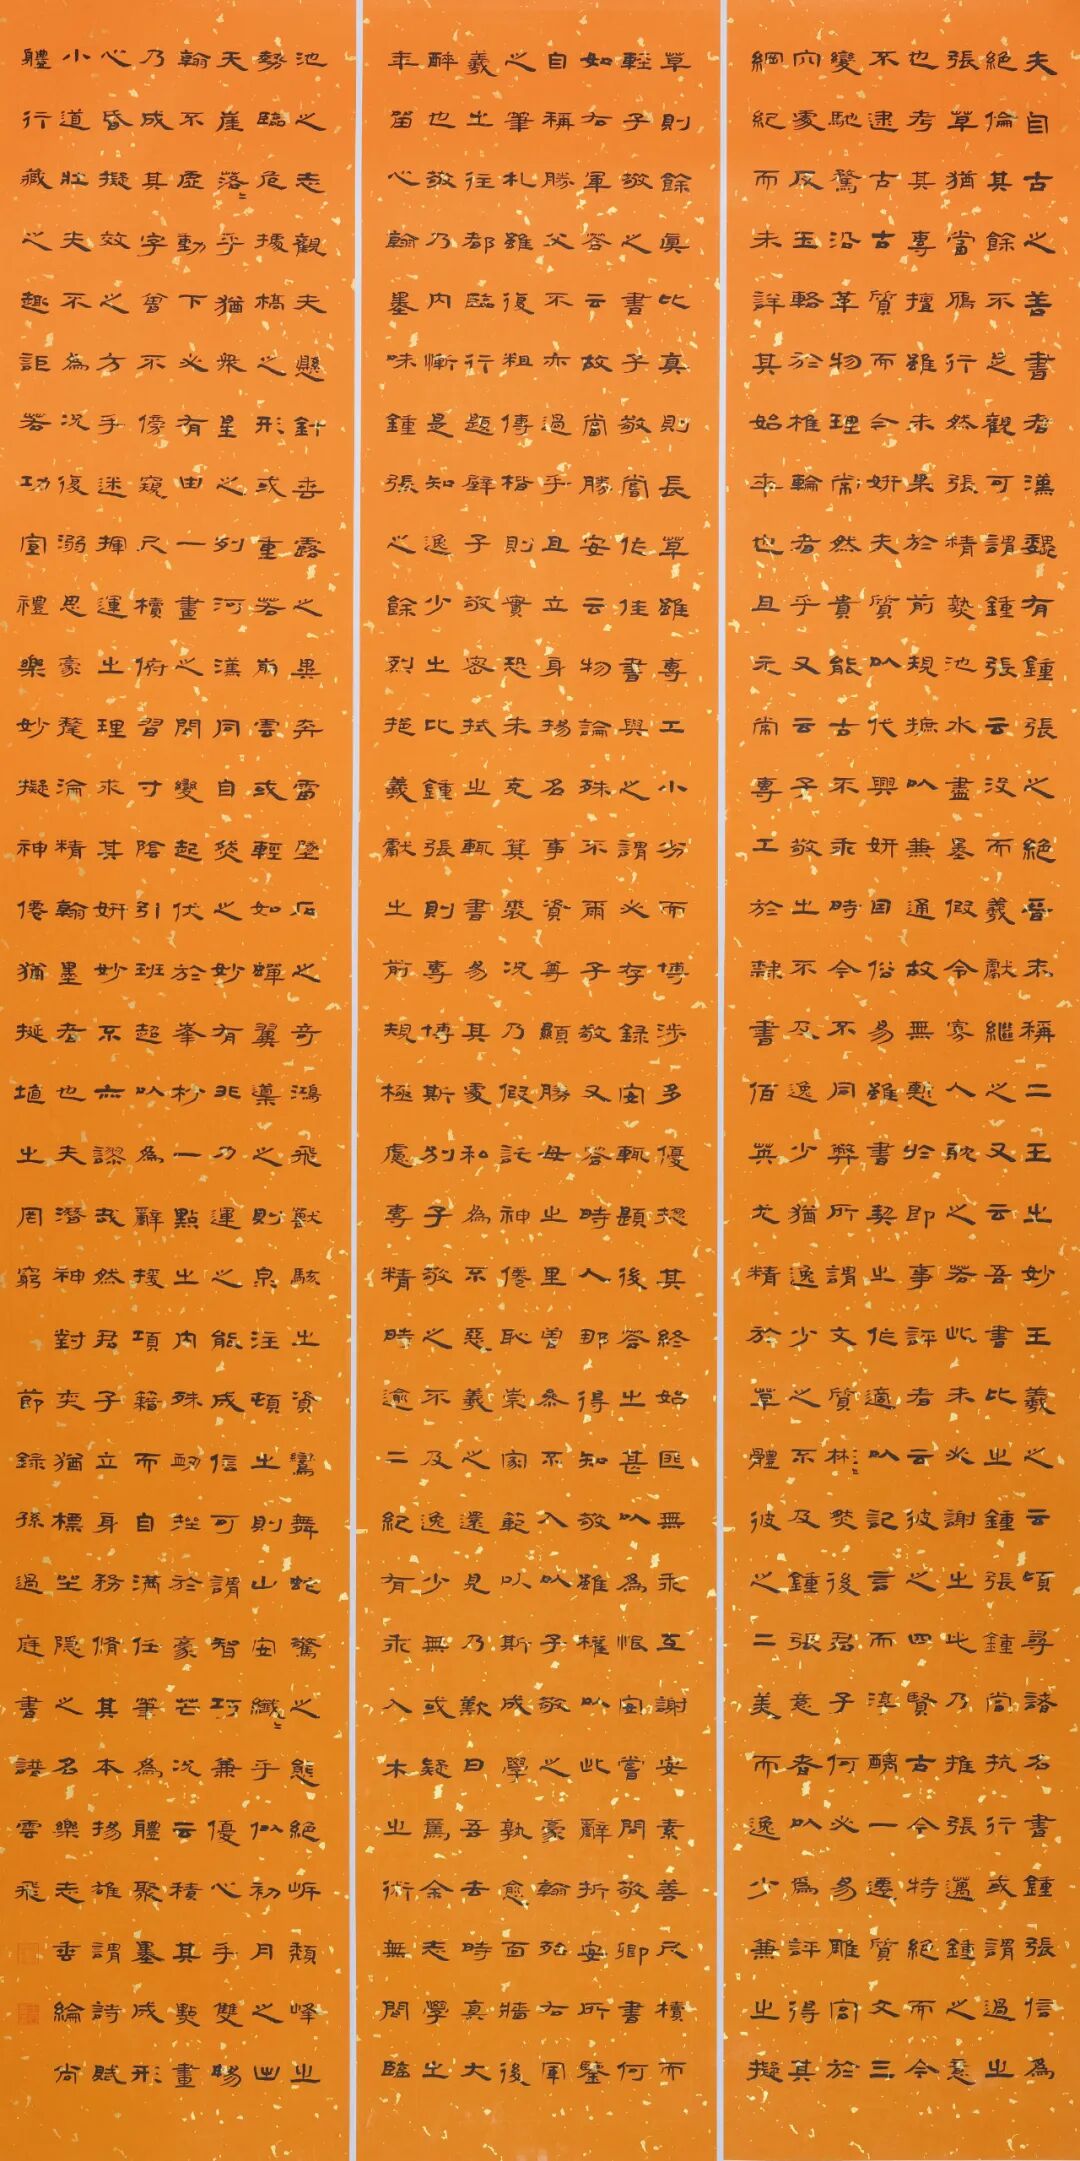 夫自古之善書者漢魏有鍾張之絕晉末稱二王之妙王羲之云頃尋諸名書鍾張信為
絕倫其餘不足觀可謂鍾張云沒而羲獻繼之又云吾書比之鍾張鍾當抗行或謂過之
張草猶當鴈行然張精熟池水盡墨假令寡人耽之若此未必謝之此乃推張邁鍾之意
也考其專擅雖未果於前規摭以兼通故無慙於即事評者云彼之四賢古今特絕而今
不逮古古質而今妍夫質以代興妍因俗易雖書契之作適以記言而淳醨一遷質文三
變馳騖沿革物理常然貴能古不乖時今不同弊所謂文質彬彬然後君子何必易雕宮於
穴處反玉輅於椎輪者乎又云子敬之不及逸少猶逸少之不及鍾張意者以為評得其
綱紀而未詳其始卒也且元常專工於隸書佰英尤精於草體彼之二美而逸少兼之擬
草則餘真比真則長草雖專工小劣而博涉多優揔其終始匪無乖互謝安素善尺櫝而
輕子敬之書子敬嘗作佳書與之謂必存錄安輒題後答之甚以為恨安嘗問敬卿書何
如右軍答云故當勝安云物論殊不爾子敬又答時人那得知敬雖權以此辭折安所鑒
自稱勝父不亦過乎且立身揚名事資尊顯勝母之里曾參不入以子敬之豪翰紿右軍
之筆札雖復粗傳楷則實恐未克箕裘況乃假託神僊恥崇家範以斯成學孰愈面牆後
羲之往都臨行題壁子敬密拭之輒書易其處私為不惡羲之還見乃歎曰吾去時真大
醉也敬乃內慚是知逸少之比鍾張則專博斯別子敬之不及逸少無或疑焉余志學之
年留心翰墨味鍾張之餘烈挹羲獻之前規極慮專精時逾二紀有乖入木之術無間臨
池之志觀夫懸針垂露之異奔雷墜石之奇鴻飛獸駭之資鸞舞蛇驚之態絕岸頹峰之
勢臨危據槁之形或重若崩雲或輕如蟬翼導之則泉注頓之則山安纖纖乎似初月之出
天崖落落乎猶眾星之列河漢同自然之妙有非力運之能成信可謂智巧兼優心手雙暢
翰不虛動下必有由一畫之間變起伏於峯杪一點之內殊衄挫於豪芒況云積其點畫
乃成其字曾不傍窺尺櫝俯習寸陰引班超以為辭援項籍而自滿任筆為體聚墨成形
心昏擬效之方手迷揮運之理求其妍妙不亦謬哉然君子立身務脩其本揚雄謂詩賦
小道壯夫不為況復溺思豪氂淪精翰墨者也夫潛神對奕猶標坐隱之名樂志垂綸尚
體行藏之趣詎若功宣禮樂妙擬神僊猶挻埴之罔窮 節錄孫過庭書譜雲飛